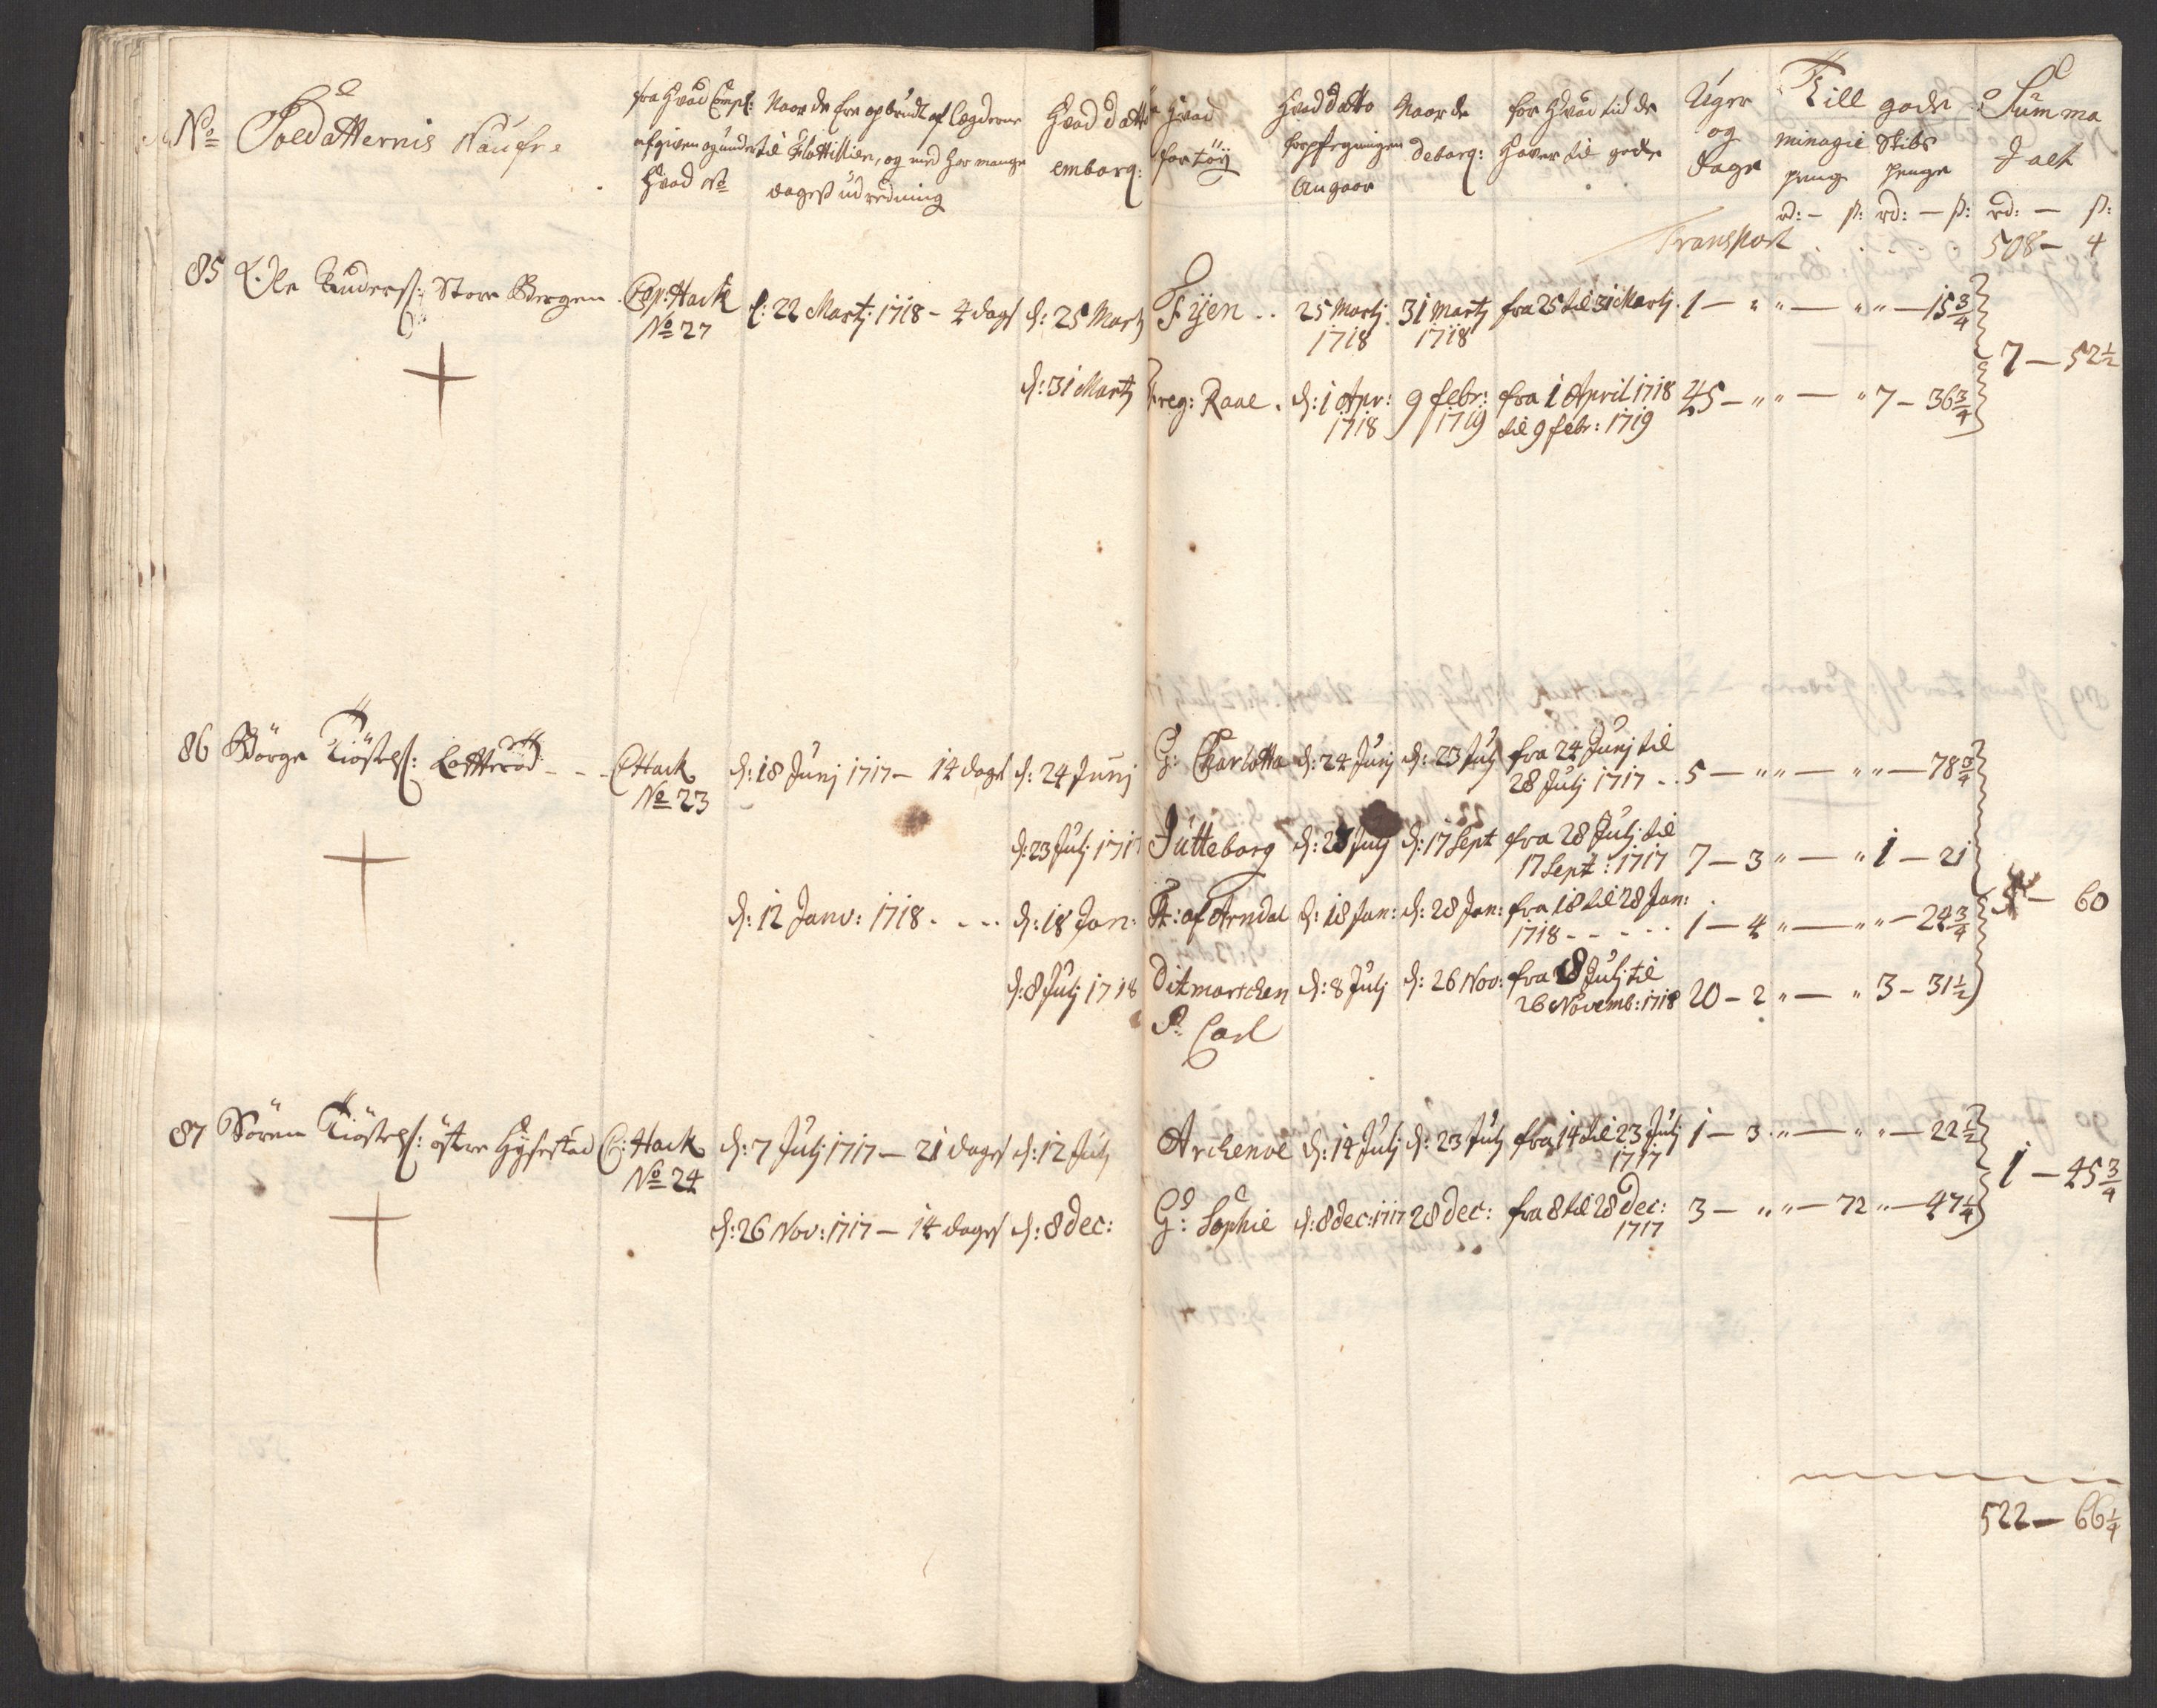 No Soldatternis Naufne
fra Hvad Comp:
afgiven og under
Hvad No
Naar de Ere opbrudt af Lægderne
til Flottillien, og med hor mange
dagers udredning
Hvad datto
embarq:
Hvad
fartöÿ
Hvad datto
forpfleguingen
Angaar
Naar de
debarq:
for Hvad tid de
Haver til gode
Uger
og
dage
Till gode
minagie Skibs
peng penge
rd: – s: rd: – s:
Summa
J alt
rd: – s:
Transport . . . . 508 – 4
85 Ole Anderss: Store Bergen Cap: Hack d: 22 Martj 1718 – 4 dags d: 25 Martj Fÿen . . 25 Martj 31 Martj fra 25 til 31 Martj 1 – " " – " " – 15 3/4
No 27 1718 1718
7 – 52 1/2
d: 31 Martj Freg: Raae . d: 1 Apr: 9 febr: fra 1 April 1718 45 – " " – " 7 – 36 3/4
1718 1719 til 9 febr: 1719
86 Börge Tiöstelss: Lofterød - - - C Hack d: 18 Junj 1717 – 14 dages d: 24 Junj G: Charlotta d: 24 Junj d: 23 Julj fra 24 Junj til
No 23 28 Julj 1717 . . 5 – " " – " " – 78 3/4
d: 23 Julj 1717 Jütteborg d: 28 Julj d: 17 Sept fra 28 Julj til
17 Sept: 1717 7 – 3 " – " 1 – 21
5 – 60
d: 12 Janv: 1718 . - - - d: 18 Jan: Fr: af Arndal d: 18 Jan: d: 28 Jan: fra 18 til 28 Jan:
1718 - - - - - 1 – 4 " – " " – 24 3/4
d: 8 Julj 1718 Ditmarschen d: 8 Julj d: 26 Nov: fra 8 Julj til
26 Novemb: 1718 20 – 2 " – " 3 – 31 1/2
Pr: Carl
87 Sören Tiöstelss: östre Hÿfestad C: Hack d: 7 Julj 1717 – 21 dages d: 12 Julj Archenoe d: 14 Julj d: 23 Julj fra 14 til 23 Julj 1 – 3 " – " " – 22 1/2
No 24 1717
1 – 45 3/4
d: 26 Nov: 1717 – 14 dages d: 8 dec: G: Sophie d: 8 dec: 1717 28 dec: fra 8 til 28 dec: 3 – " " – 72 " – 47 1/4
1717
522 – 66 1/4